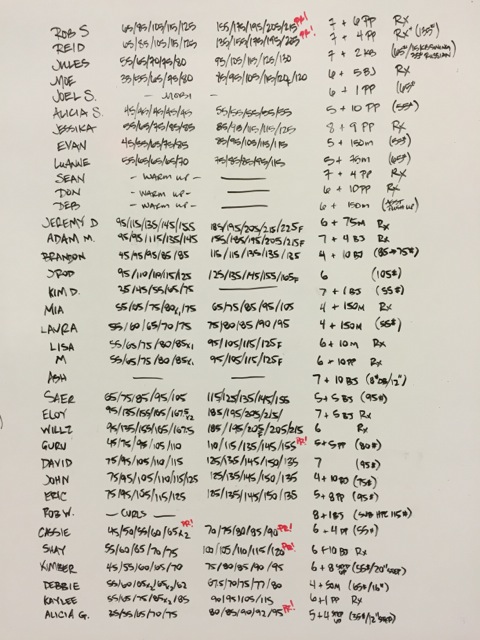 ROB S 65/85/105/115/125 155/175/195/205/215 PR! 7 + 6 PP Rx
REID 65/85/105/115/125 135/155/175/195/205 PR! 7 + 4 PP Rx+ (135#)
JULES 55/65/70/75/80 95/105/115/125/130 7 + 2 KB
MOE 35/55/65/75/80 75/95/105/115/120/120 6 + 5 BJ Rx
JOEL S. 6 + 1 PP (65#)
ALICIA S. 45/45/45/45/45 55/55/55/55/55 5 + 10 PP (55#)
JESSIKA 55/65/75/85/85 85/95/105/115/125 8 + 9 PP Rx
EVAN 45/55/65/75/85 85/95/105/115/115 5 + 150m (55#)
LUANNE 55/65/65/65/70 75/85/85/95/115 5 + 75m (65#)
SEAN - WARM UP - 7 + 4 PP Rx
DON - WARM UP - 6 + 10 PP Rx
DEB - WARM UP - 6 + 150m
JEREMY D 95/115/135/145/155 185/195/205/215/225F 6 + 75M Rx
ADAM M. 95/95/115/135/145 155/185/195/205/215F 7 + 4 BJ Rx
BRANDON 45/95/95/85/85 115/115/135/135/125 4 + 10 BJ (85→75#)
JROD 95/110/119/125 125/135/145/155/165F 6 (105#)
KIM D. 25/45/55/65/75 7 + 1 BJ (55#)
MIA 55/65/75/80x1/75 65/75/85/95/105 4 + 150M Rx
LAURA 55/60/65/70/75 75/80/85/90/95 4 + 150M (55#)
LISA 55/65/75/80/85x1 95/105/115/125F 6 + 10M Rx
M 55/65/75/80/85x1 95/105/115/125F 6 + 10 PP Rx
ASH 7 + 10 BJ (8"DB/12")
SAER 65/75/85/95/105 115/125/135/145/155 5 + 5 BJ (95#)
ELOY 95/135/155/165/167.5x2 185/195/205/215/ 7 + 5 BJ Rx
WILLZ 95/135/155/165/167.5 185/195/205/205/215 6 Rx
GURU 45/75/95/105/110 110/115/135/145/155 PR! 5 + 5 PP (80#)
DAVID 75/95/105/110/115 125/135/145/150/135 7 (95#)
JOHN 75/95/105/110/115/125 125/135/145/150/135 4 + 10 BJ (75#)
ERIC 75/95/105/115/125 125/135/145/150/135 5 + 8 PP (95#)
ROB W. - CURLS - 8 + 1 BJ
CASSIE 45/50/55/60/65x2 PR! 70/75/80/85/90 PR! 6 + 4 PP (55#)
SHAY 55/60/65/70/75 100/105/110/115/120 PR! 6 + 10 BJ Rx
KIMBER 45/55/60/65/70 75/80/85/90/95 6 + 8
DEBBIE 55/60/65x2/65x2/62 67.5/70/75/77/80 4 + 50M (65#/16")
KAYLEE 55/65/75/85x2/85 90/95/105/115 6 + 1 PP Rx
ALICIA G. 35/55/65/70/75 80/85/90/92/95 PR! 5 + 4